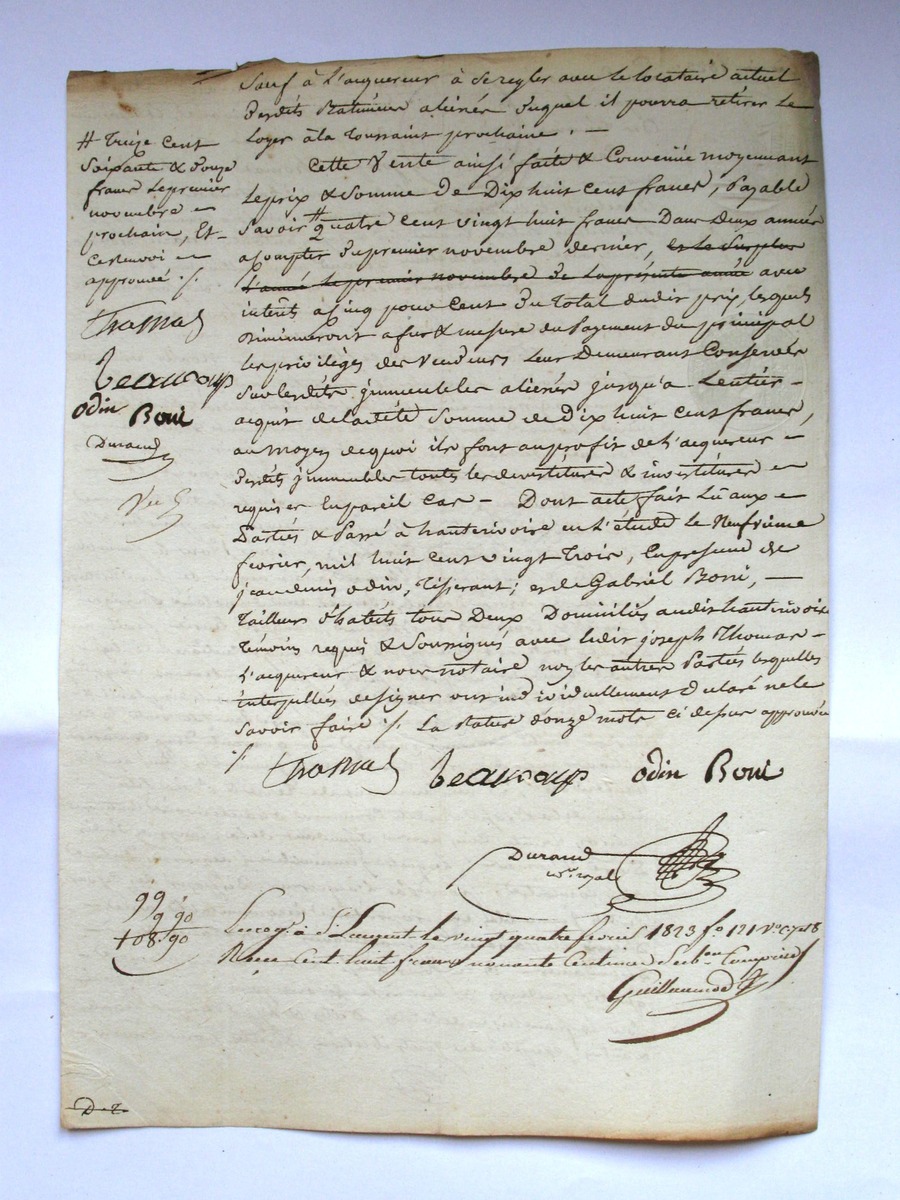 Sauf à L'acquereur à se regler avec le locataire actuel
desdits Batimens alienés duquel il pourra retirer le
Loyer à la Toussaint prochaine. —
Cette Vente ainsi faite & Convenüe moyennant
Le prix & Somme de Dix huit cent francs, Payable
Savoir # quatre cent vingt huit francs Dans Deux années
a compter du premier novembre dernier, et le Surplus
L'année le premier novembre de la présente année avec
interets a cinq pour Cent du Total dudit prix, lesquels
diminueront a fur & mesure du Payement du principal
les privilèges des Vendeurs Leur Demeurant Conservés
Sur lesdits jmmeubles alienés jusqu'a Lentier —
acquit de ladite Somme de Dix huit cent francs,
au moyen de quoi ils font au profit de L'acquereur —
desdits jmmeubles toutes les devestitures & investitures —
requises En pareil Cas — Dont acte fait Lû aux —
Parties & Passé à hauterivoire en L'étude le Neufvieme
fevrier, mil huit cent vingt trois, En presence de
jean denis odin, Tisserant; et de Gabriel Boni, —
Tailleur d'habits tous Deux Domiciliés audit hauterivoire
Témoins requis & Soussignés avec ledit joseph Thomas —
L'acquereur & nous notaire non les autres Parties lesquelles
interpellées de signer ont individuellement declaré ne le
Savoir faire ./. La Rature d'onze mots ci dessus approuvée
./.
Thomas Beaucoup odin Boni
Durand
no.re royal
# Treize Cent
Soixante & Douze
francs Le premier
novembre —
prochain, Et —
ce renvoi —
approuvé ./.
Thomas
Beaucoup
odin Boni
Durand
99
9 90
108.90
Enreg.é à St Laurent le vingt quatre fevrier 1823 fo 121 Vo C 7 & 8
Reçu Cent huit francs nonante Centimes Subon Comprise
D.T.